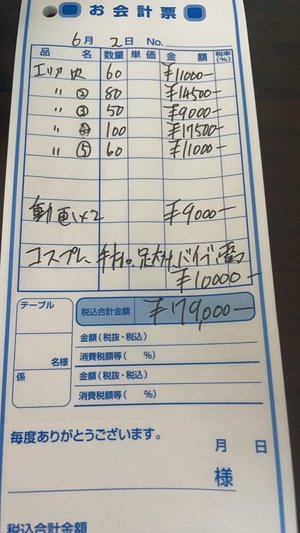 お会計票
6月 2日 No.
品 名 数量 単価 金 額 税率(%)
エリア 60 ¥11000-
〃 ② 80 ¥14500-
〃 ③ 50 ¥9000-
〃 ④ 100 ¥17500-
〃 ⑤ 60 ¥11000-
動画×2 ¥9000-
コスプレ、
¥10000-
テーブル 税込合計金額 ¥79,000-
金額(税抜・税込)
名様 消費税額等( %)
係 金額(税抜・税込)
消費税額等( %)
毎度ありがとうございます。
月 日
様
税込合計金額